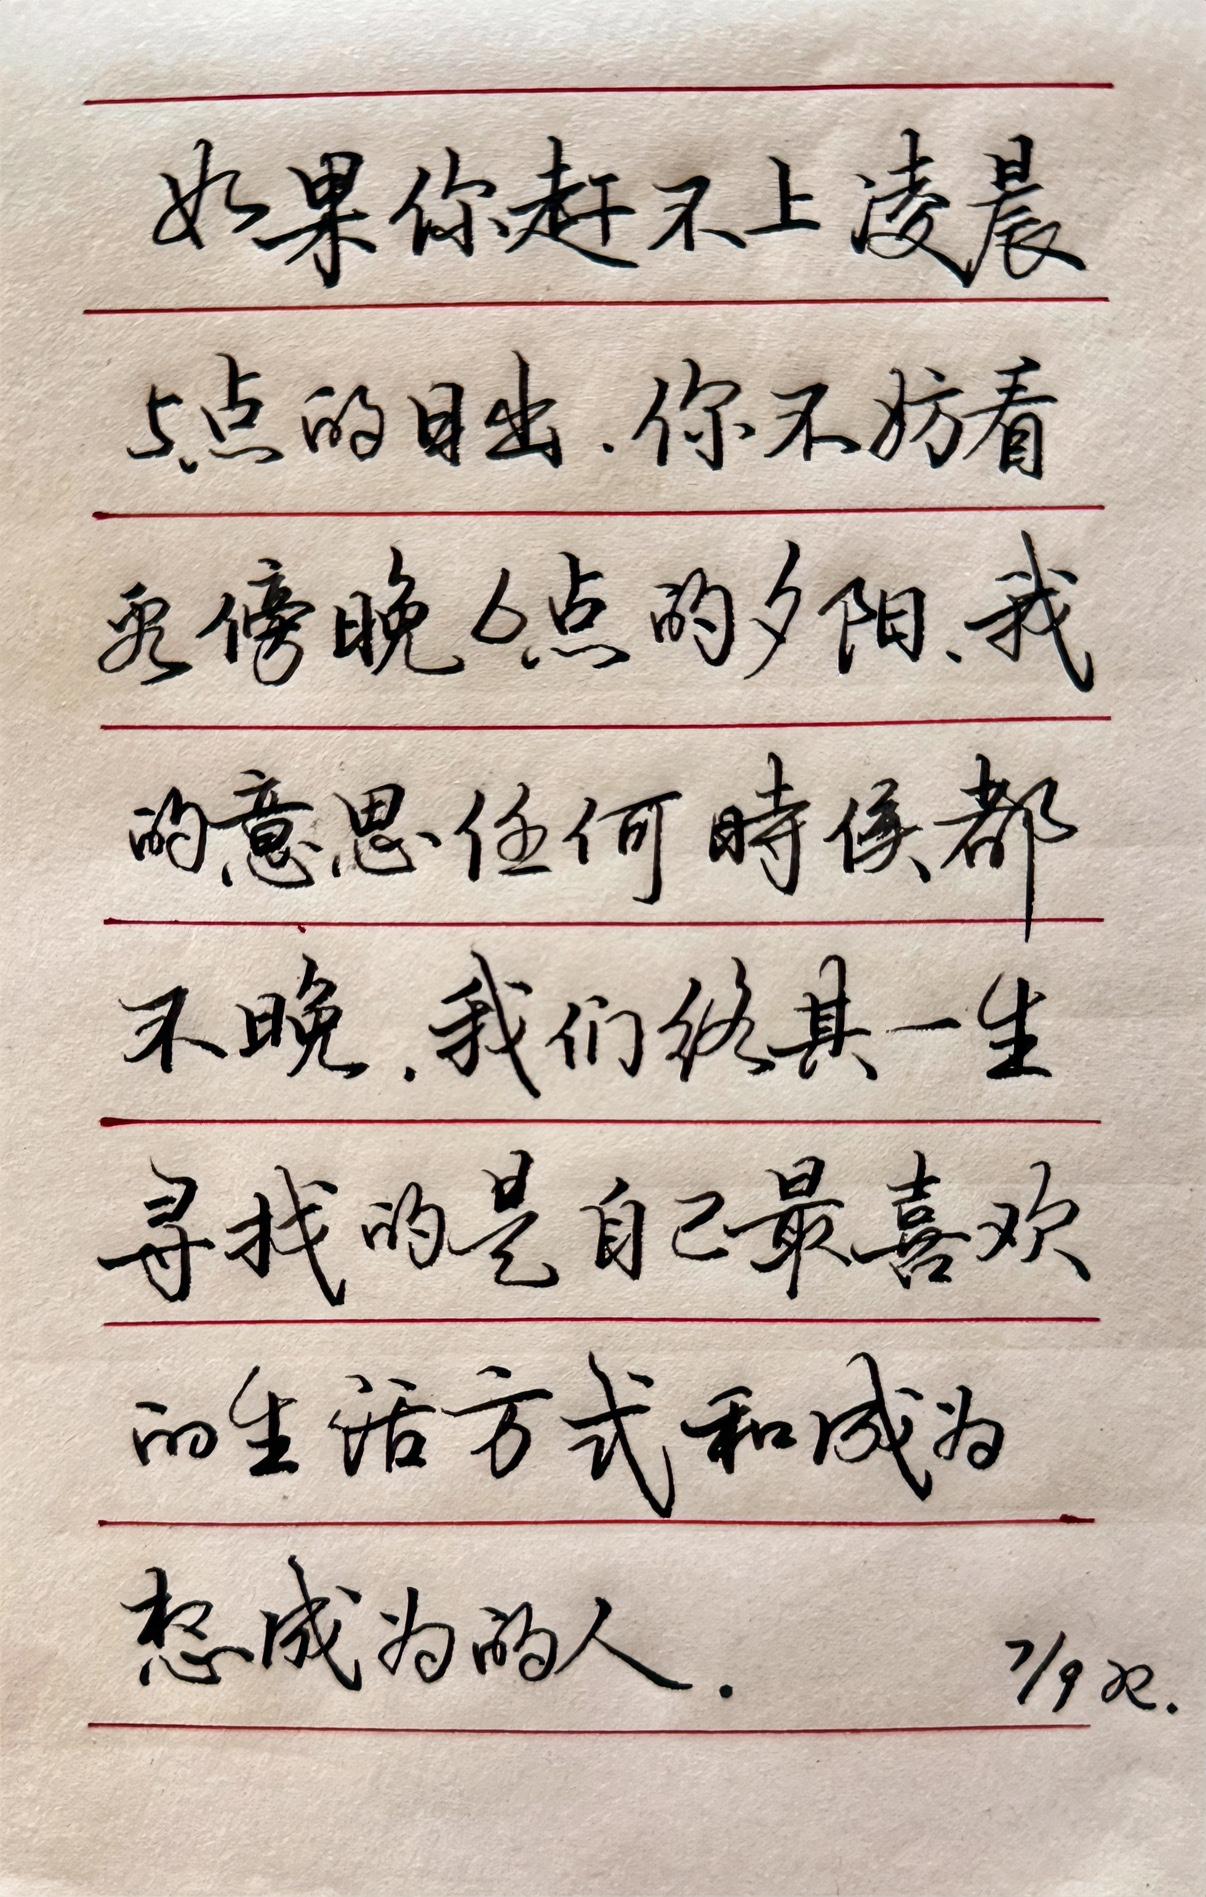 如果你赶不上凌晨
5点的日出.你不妨看
看傍晚6点的夕阳、我
的意思任何時候都
不晚.我们终其一生
寻找的是自己最喜欢
的生活方式和成为
想成为的人.
7/9